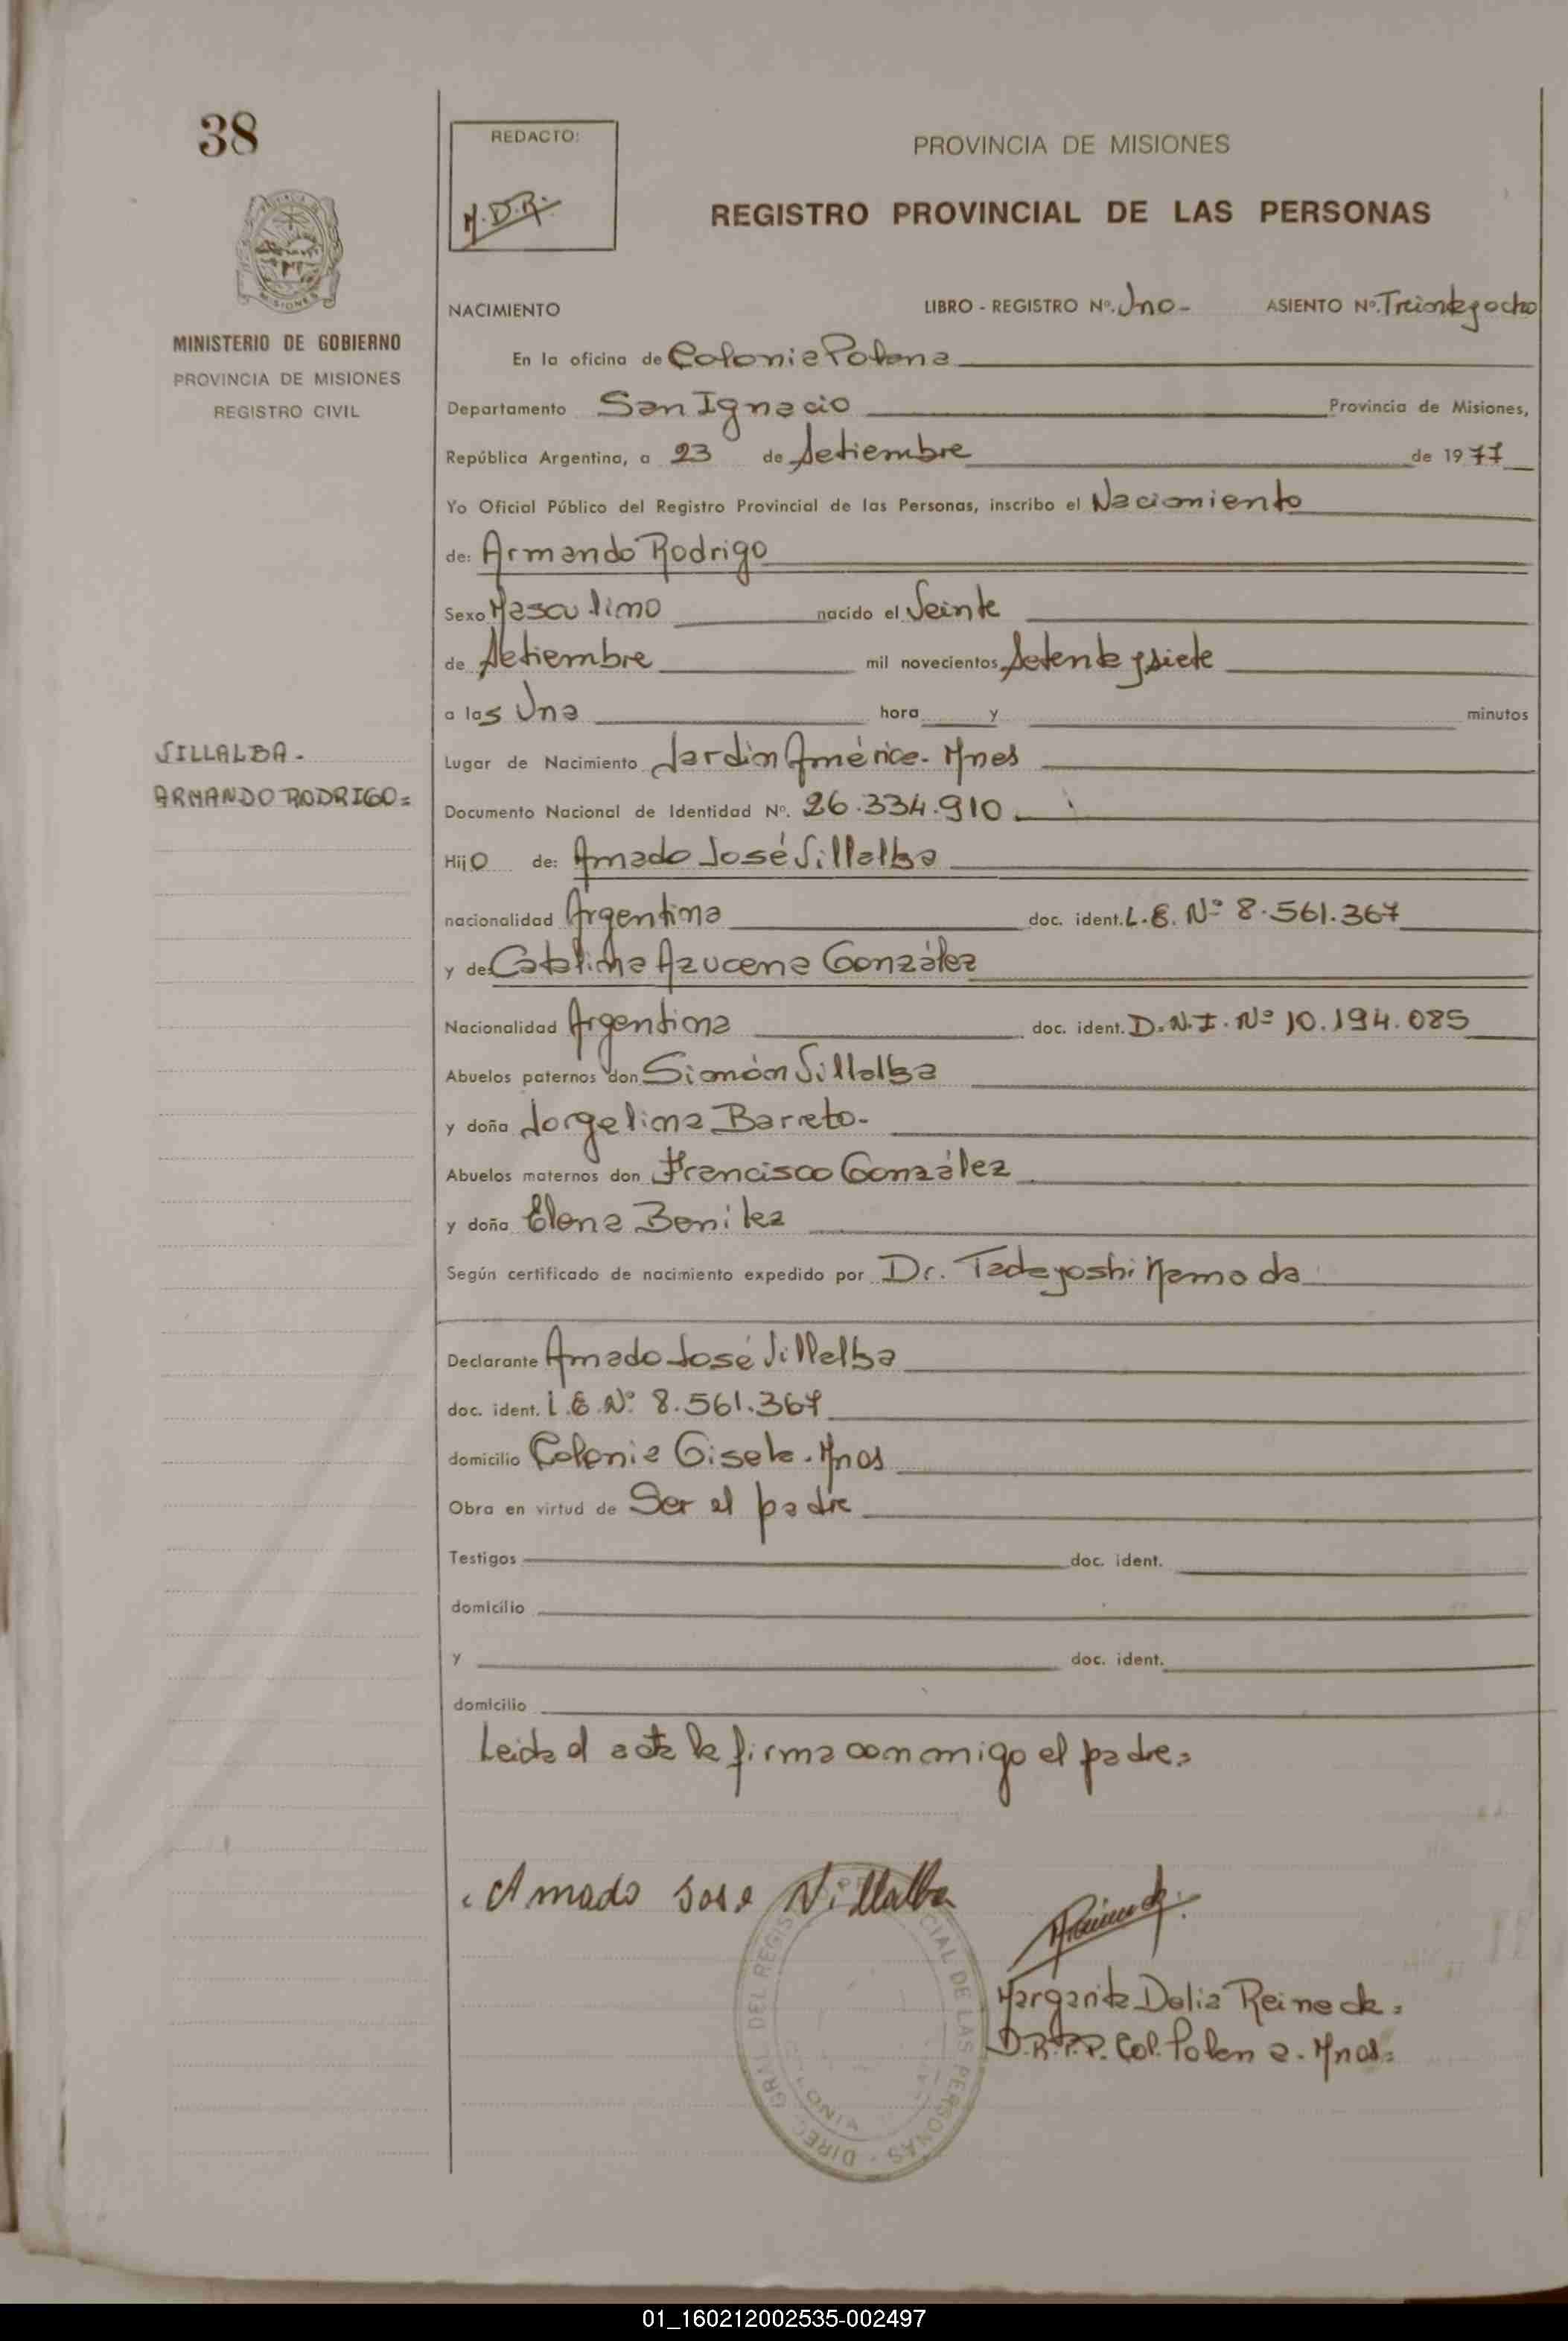 38
REDACTO:
M.D.R.
PROVINCIA DE MISIONES
REGISTRO PROVINCIAL DE LAS PERSONAS
MISIONES
MINISTERIO DE GOBIERNO
PROVINCIA DE MISIONES
REGISTRO CIVIL
NACIMIENTO LIBRO - REGISTRO Nº. Uno- ASIENTO Nº. Treinta y ocho
En la oficina de Colonia Polana
Departamento San Ignacio Provincia de Misiones,
República Argentina, a 23 de Setiembre de 1977
Yo Oficial Público del Registro Provincial de las Personas, inscribo el Nacimiento
de: Armando Rodrigo
Sexo Masculino nacido el Veinte
de Setiembre mil novecientos Setenta y siete
a las Una hora y minutos
VILLALBA.-
ARMANDO RODRIGO=
Lugar de Nacimiento Jardín América- Mnes
Documento Nacional de Identidad Nº. 26.334.910
Hijo de: Amado José Villalba
nacionalidad Argentina doc. ident. L.E. Nº 8.561.367
y de: Catalina Azucena González
Nacionalidad Argentina doc. ident. D.N.I. Nº 10.194.085
Abuelos paternos don Simón Villalba
y doña Jorgelina Barreto-
Abuelos maternos don Francisco González
y doña Elena Benitez
Según certificado de nacimiento expedido por Dr. Tadayoshi Kamada
Declarante Amado José Villalba
doc. ident. L.E. Nº 8.561.367
domicilio Colonia Gisela. Mnes
Obra en virtud de Ser el padre
Testigos doc. ident.
domicilio
y doc. ident.
domicilio
Leida el acta la firma conmigo el padre=
Amado José Villalba
Margarita Delia Reineck=
D.R.P.P. Col. Polana. Mnes=
DIREC. GRAL. DEL REGIS CIAL DE LAS PERSONAS
01_160212002535-002497